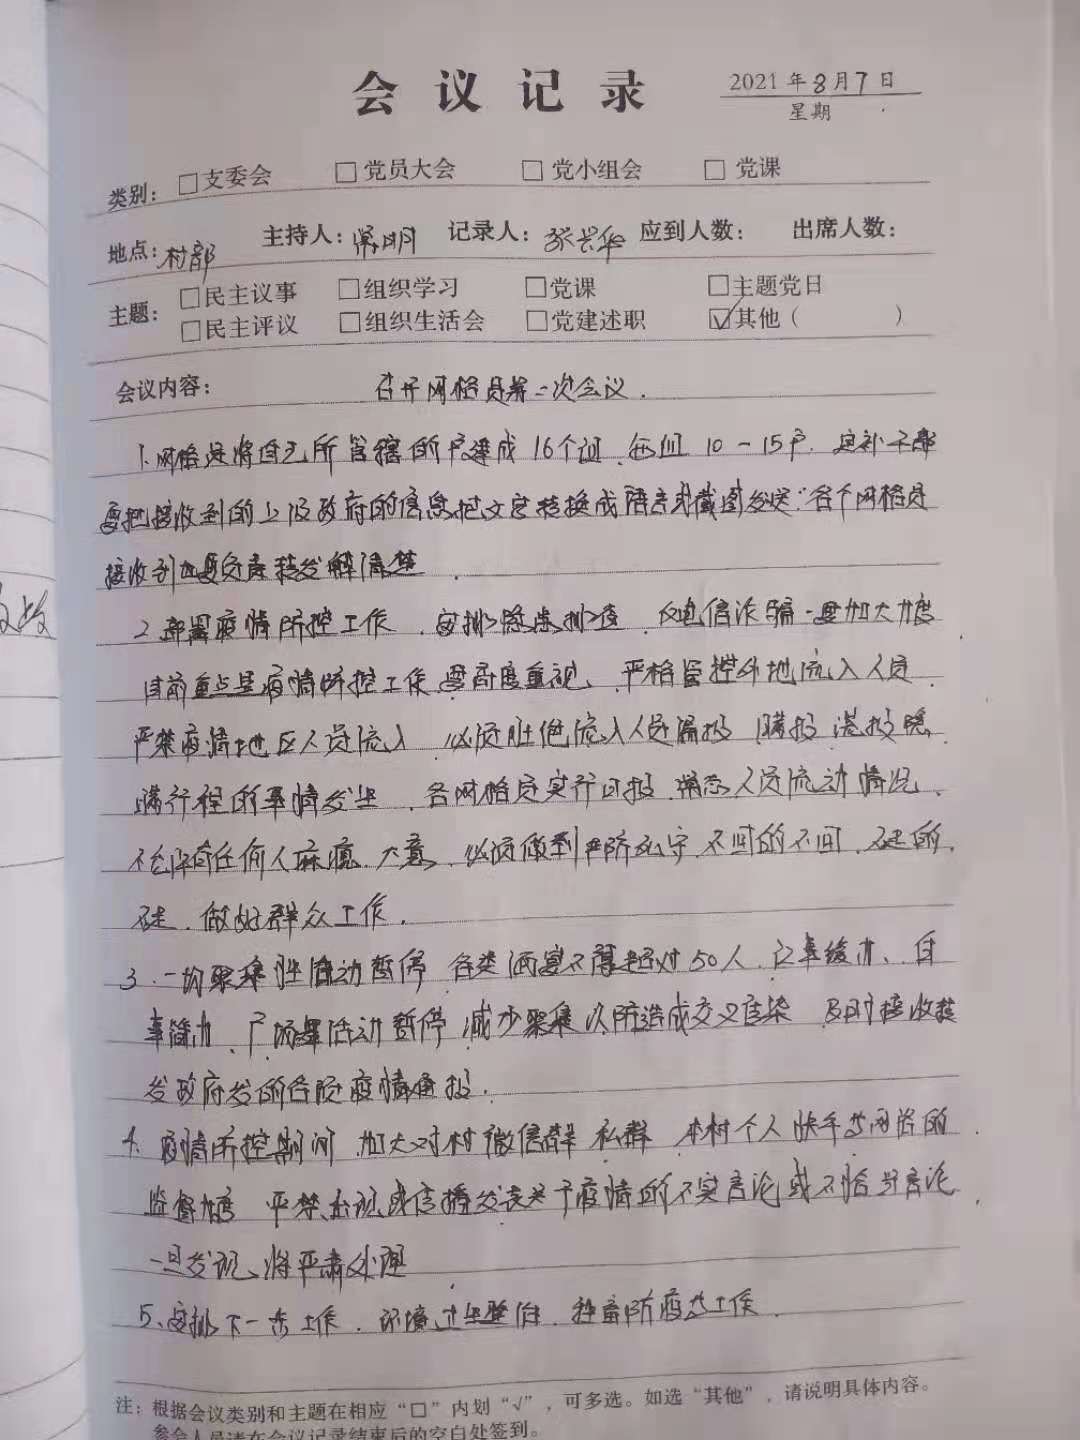 会议记录
2021年8月7日
星期
类别: □支委会 □党员大会 □党小组会 □党课
地点: 村部 主持人: 明 记录人: 张兴华 应到人数: 出席人数:
主题: □民主议事 □组织学习 □党课 □主题党日
□民主评议 □组织生活会 □党建述职 ☑其他( )
会议内容: 召开网格员第二次会议.
1.网格员将自己所管辖的户建成16个组.每组10-15户.
要把接收到的上级政府的信息把文字转换成语音或截图发送.各个网格员
接收到 要负责转发解清楚.
2.部署疫情防控工作.安排隐患排查.反电信诈骗 加大力度
目前重点是疫情防控工作要高度重视、严格管控外地流入人员.
严禁疫情地区人员流入. 流入人员漏报 瞒报 谎报隐
瞒行程的事情发生.各网格员实行日报. 人员流动情况、
不允许有任何人麻痹、大意.必须做到严防死守.不 的不 . 的
.做好群众工作.
3.一切聚集性活动暂停 各类酒宴不得超过50人. 事缓办、白
事简办、广场舞活动暂停.减少聚集以防造成交叉传染 及时接收转
发政府发的各 疫情通报.
4.疫情防控期间 加大对村微信群 私群 本村个人快手 网络的
监督力度 严禁出现或传播发表关于疫情的不实言论或不恰当言论
一旦发现、将严肃处理
5、安排下一步工作.环境卫生整 . 畜防疫 工作.
注: 根据会议类别和主题在相应“□”内划“√”,可多选。如选“其他”,请说明具体内容。
参会人员请在会议记录结束后的空白处签到。